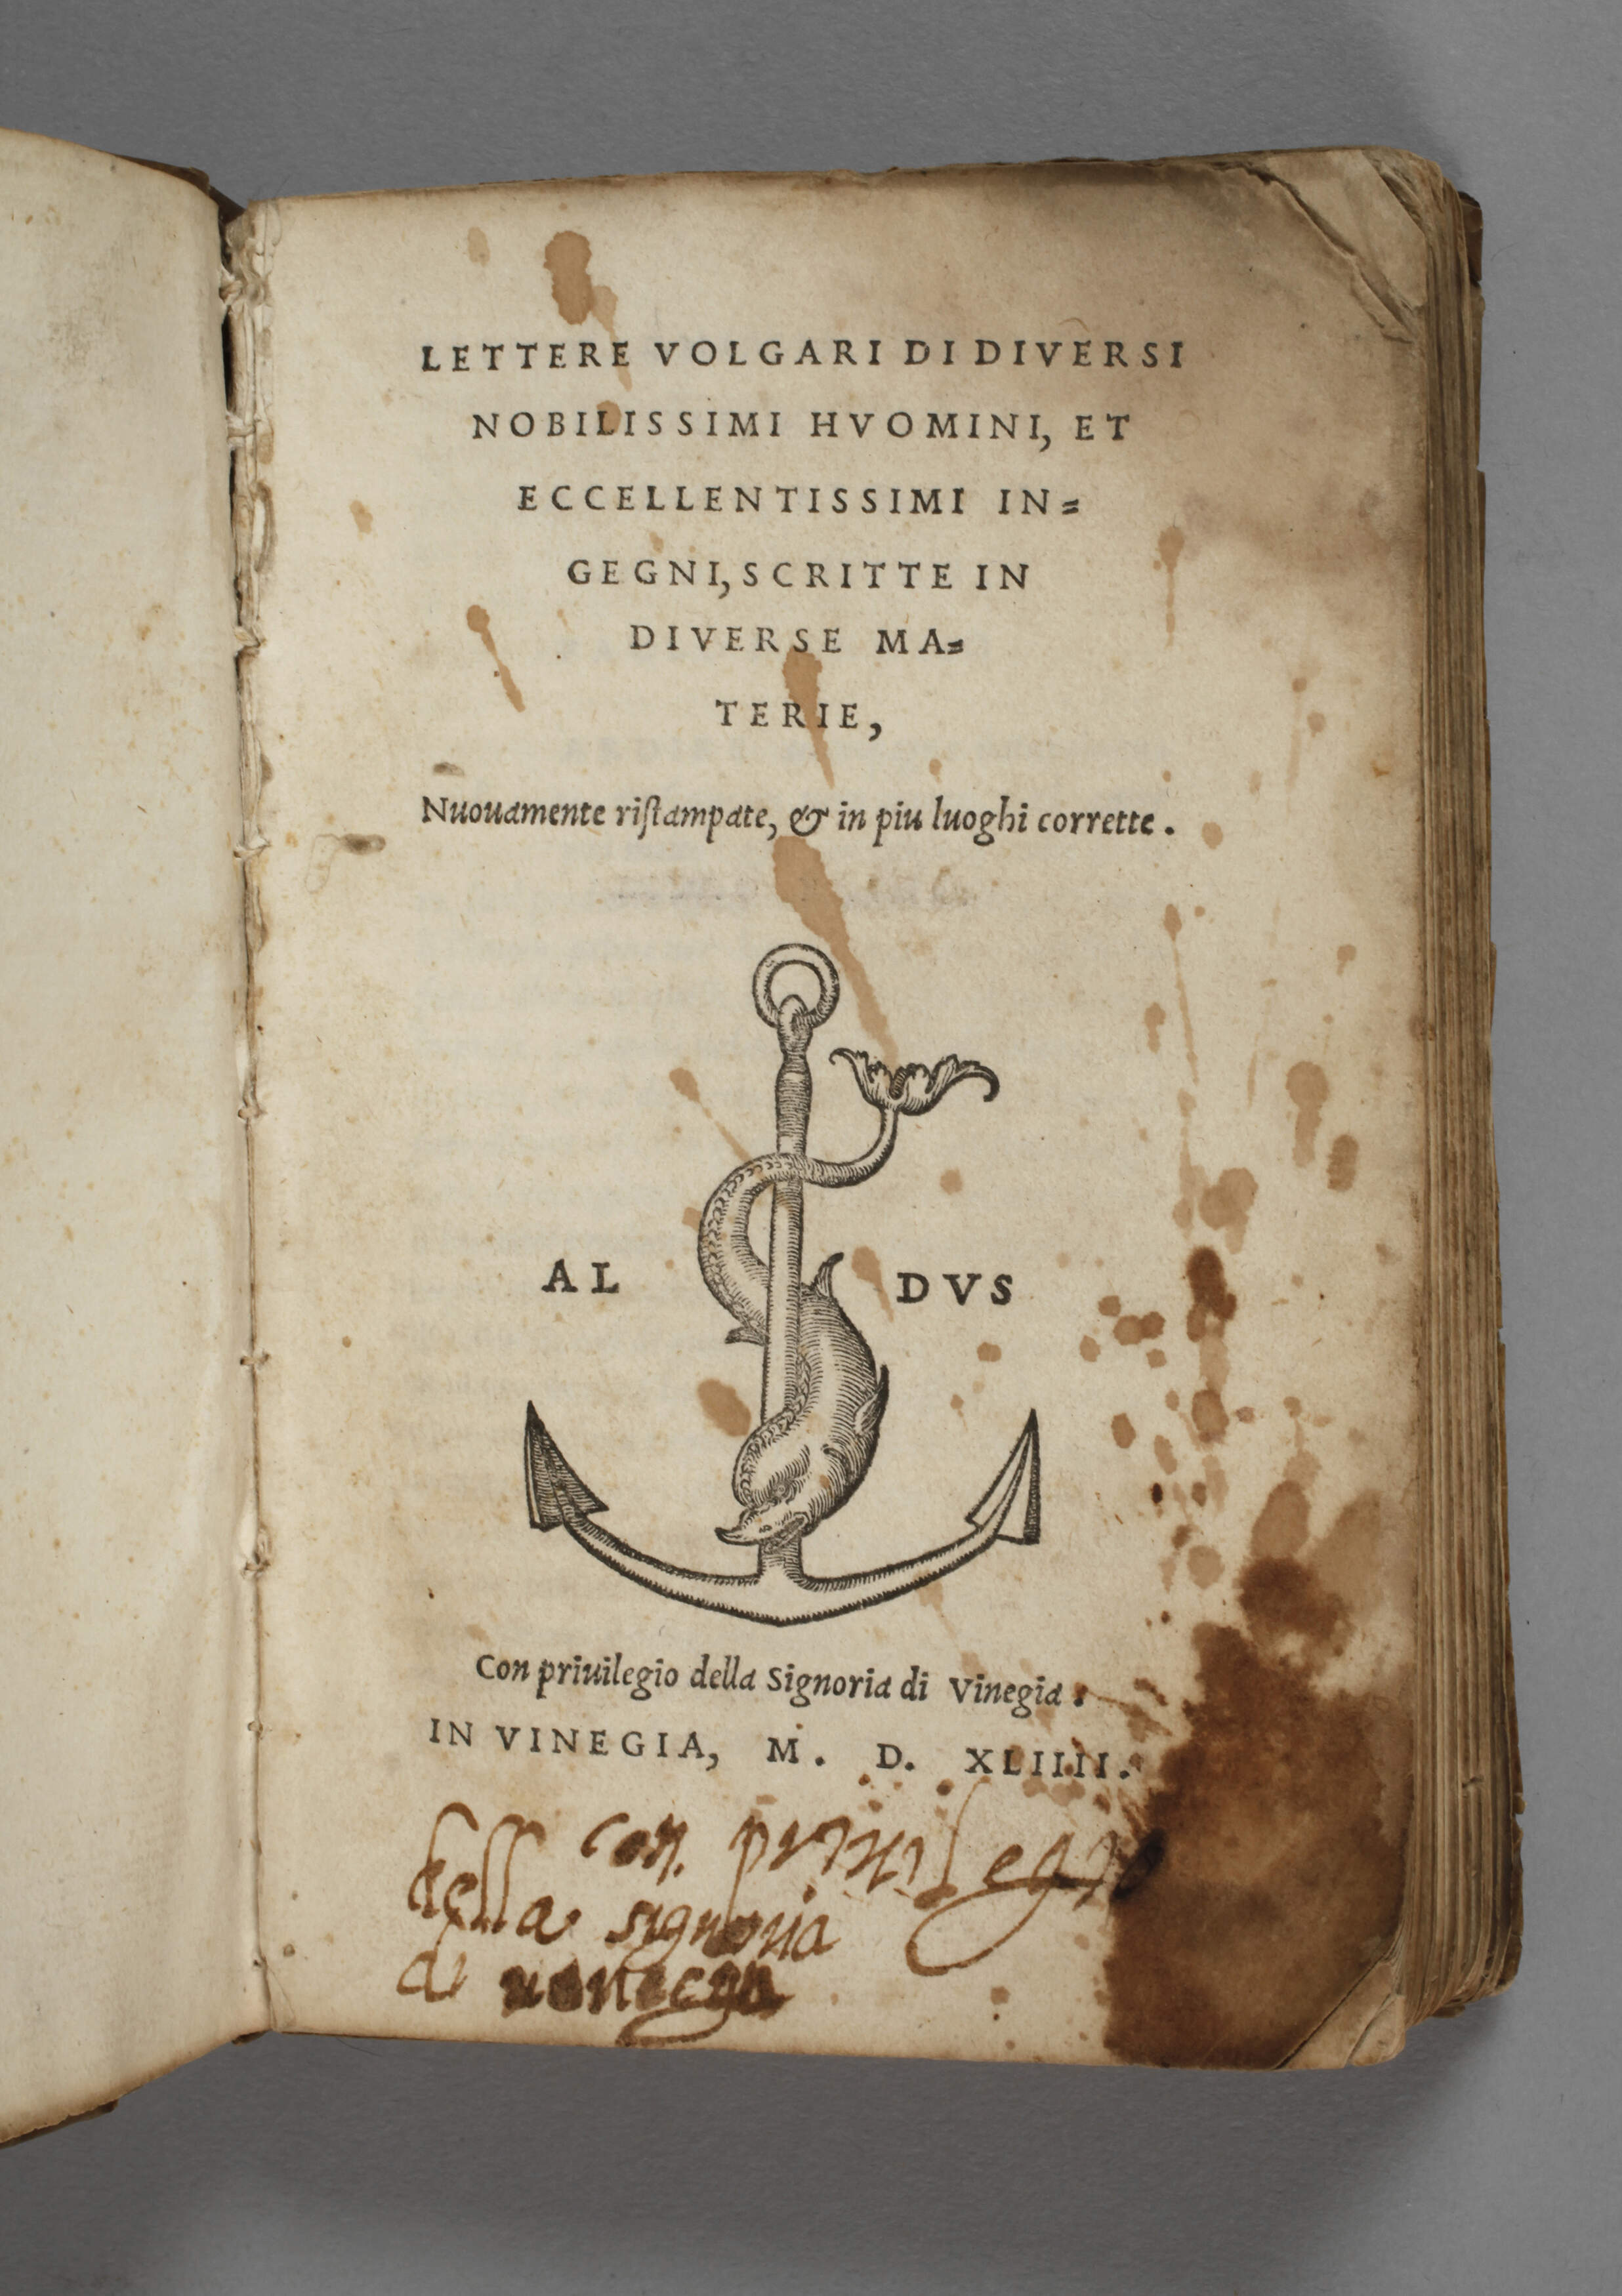 LETTERE VOLGARI DI DIVERSI
NOBILISSIMI HVOMINI, ET
ECCELLENTISSIMI IN=
GEGNI, SCRITTE IN
DIVERSE MA=
TERIE,
Nuouamente riſtampate, & in piu luoghi corrette.
AL DVS
Con priuilegio della Signoria di Vinegia.
IN VINEGIA, M. D. XLIIII.
con priuilegio
della signoria
di